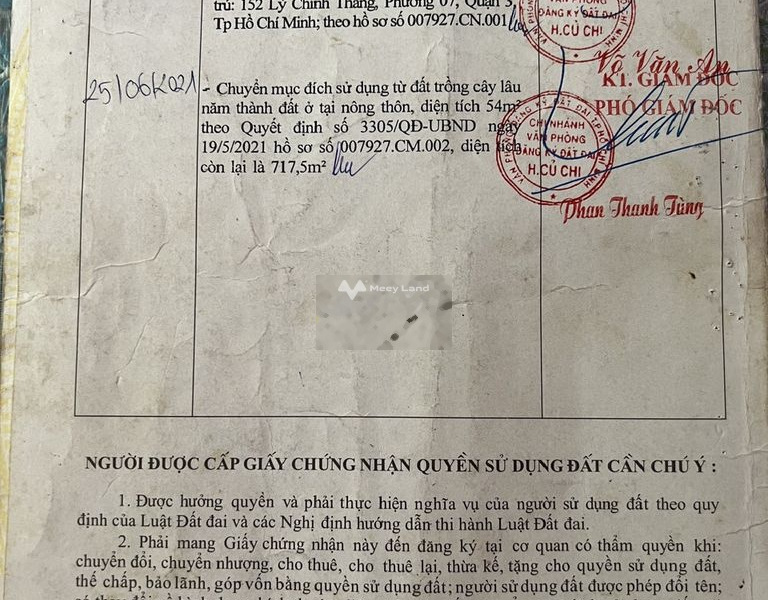 trú: 152 Lý Chính Thắng, Phường 07, Quận 3,
Tp Hồ Chí Minh; theo hồ sơ số 007927.CN.001
ĐĂNG KÝ ĐẤT ĐAI
H.CỦ CHI
Võ Văn An
25/06/2021
- Chuyển mục đích sử dụng từ đất trồng cây lâu
năm thành đất ở tại nông thôn, diện tích 54m²
theo Quyết định số 3305/QĐ-UBND ngày
19/5/2021 hồ sơ số 007927.CM.002, diện tích
còn lại là 717,5m²
KT. GIÁM ĐỐC
PHÓ GIÁM ĐỐC
VĂN PHÒNG ĐĂNG KÝ ĐẤT ĐAI TP.HỒ CHÍ MINH
CHI NHÁNH
VĂN PHÒNG
ĐĂNG KÝ ĐẤT ĐAI
H.CỦ CHI
Phan Thanh Tùng
Meey Land
NGƯỜI ĐƯỢC CẤP GIẤY CHỨNG NHẬN QUYỀN SỬ DỤNG ĐẤT CẦN CHÚ Ý :
1. Được hưởng quyền và phải thực hiện nghĩa vụ của người sử dụng đất theo quy
định của Luật Đất đai và các Nghị định hướng dẫn thi hành Luật Đất đai.
2. Phải mang Giấy chứng nhận này đến đăng ký tại cơ quan có thẩm quyền khi:
chuyển đổi, chuyển nhượng, cho thuê, cho thuê lại, thừa kế, tặng cho quyền sử dụng đất,
thế chấp, bảo lãnh, góp vốn bằng quyền sử dụng đất; người sử dụng đất được phép đổi tên;